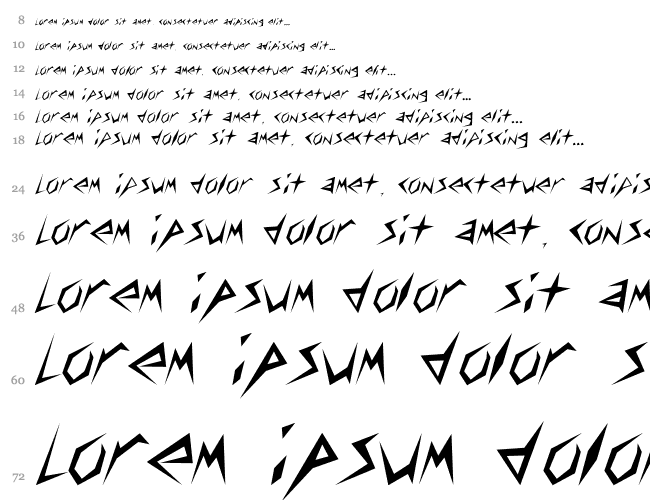 8 Lorem ipsum dolor sit amet, consectetuer adipiscing elit...
10 Lorem ipsum dolor sit amet, consectetuer adipiscing elit...
12 Lorem ipsum dolor sit amet, consectetuer adipiscing elit...
14 Lorem ipsum dolor sit amet, consectetuer adipiscing elit...
16 Lorem ipsum dolor sit amet, consectetuer adipiscing elit...
18 Lorem ipsum dolor sit amet, consectetuer adipiscing elit...
24 Lorem ipsum dolor sit amet, consectetuer adipis
36 Lorem ipsum dolor sit amet, conse
48 Lorem ipsum dolor sit am
60 Lorem ipsum dolor s
72 Lorem ipsum dolo